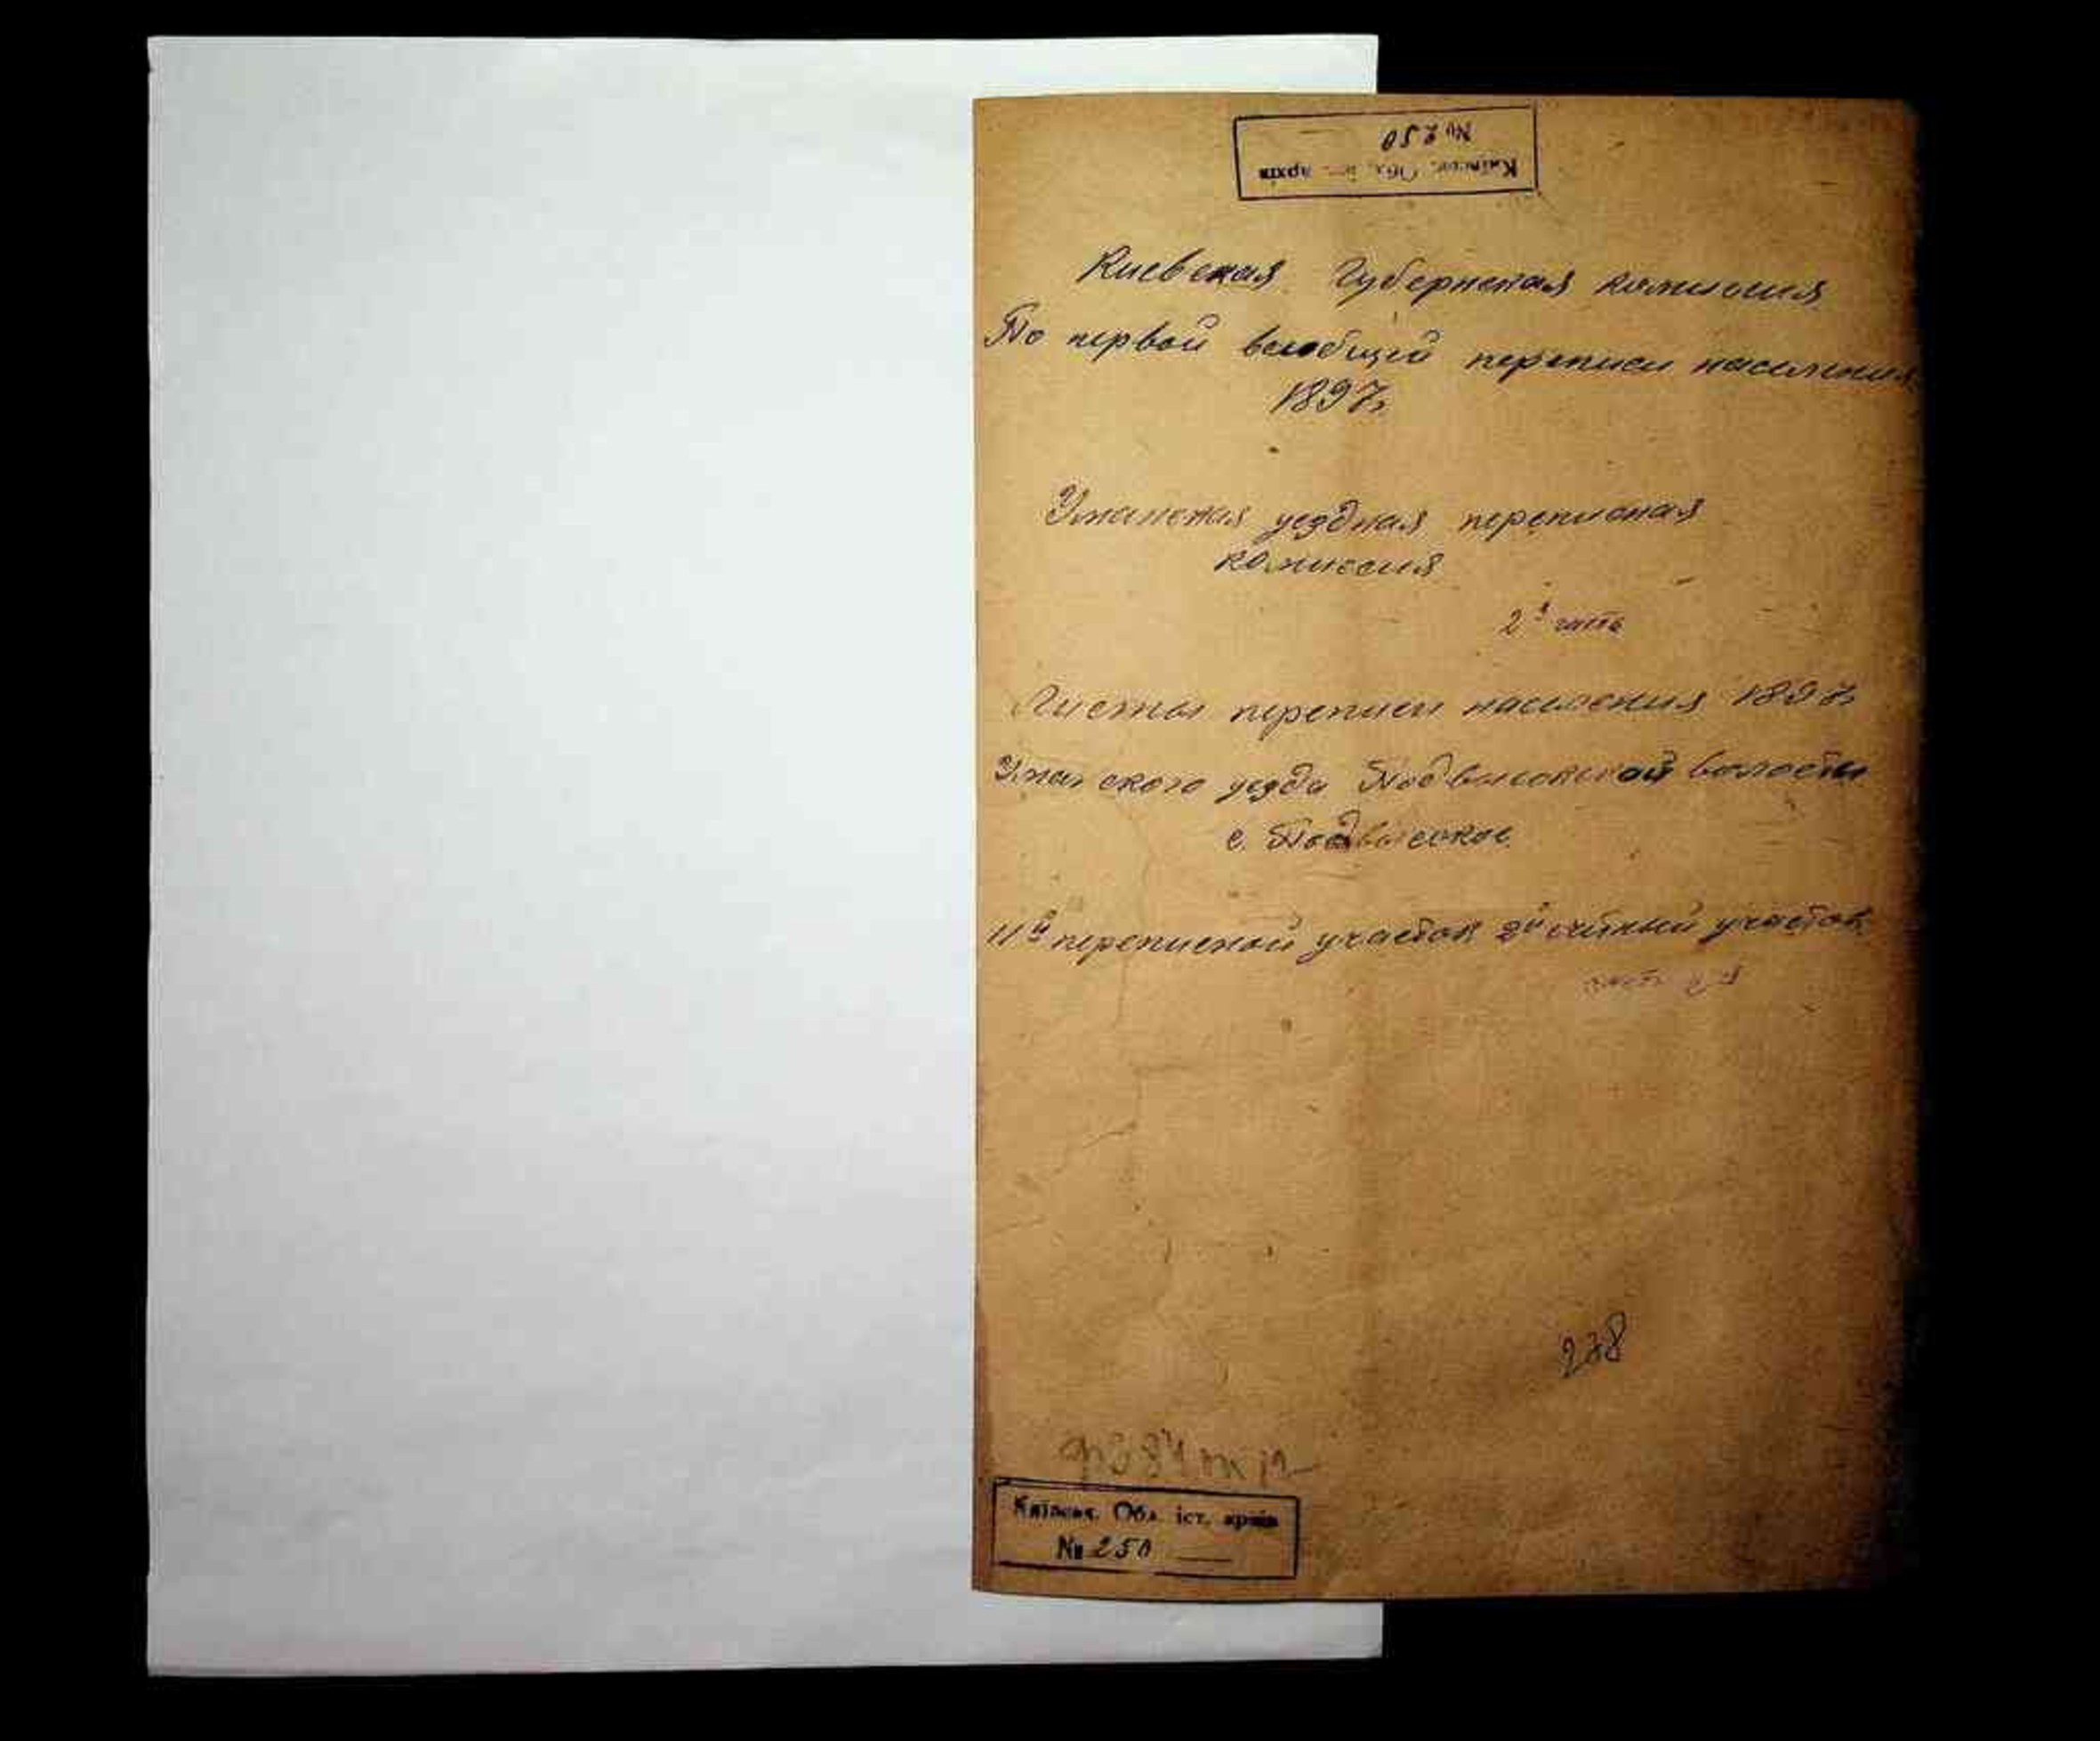 Київськ. Обл. іст. архів
№ 250
Киевская Губернская комиссия
По первой всеобщей переписи населения
1897г.
Уманская уездная переписная
комиссия
2я часть
Листы переписи населения 1897г.
Уманского уезда Подвысоцкой волости
с. Подвысокое
11й переписной участок 2й счётный участок
часть 2я
238
Київськ. Обл. іст. архів
№ 250